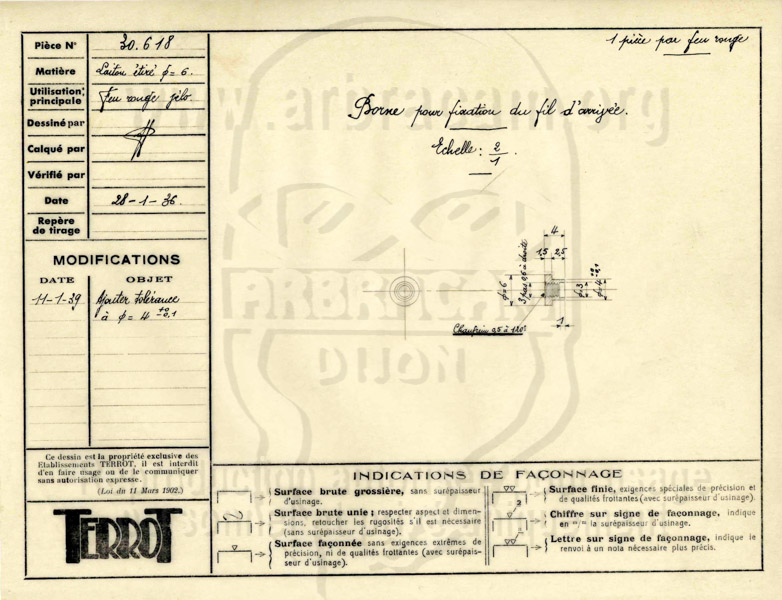 Pièce N° 30.618
Matière Laiton étiré ϕ = 6.
Utilisation principale Feu rouge jélo.
Dessiné par
Calqué par
Vérifié par
Date 28-1-36.
Repère de tirage
MODIFICATIONS
DATE OBJET
11-1-39 Ajouter tolérance
à ϕ = 4 +0 -0,1
Ce dessin est la propriété exclusive des
Etablissements TERROT, il est interdit
d'en faire usage ou de le communiquer
sans autorisation expresse.
(Loi du 11 Mars 1902.)
TERROT
1 pièce par feu rouge
Borne pour fixation du fil d'arrivée.
Echelle : 2/1.
4
1,5 2,5
ϕ=6
3 pas 0,5 à droite
ϕ 3
ϕ = 4 +0 -0,1
1
Chanfrein 0,5 à 120°
www.arbracam.org
ARBRACAM
DIJON
INDICATIONS DE FAÇONNAGE
Surface brute grossière, sans surépaisseur
d'usinage.
Surface brute unie ; respecter aspect et dimen-
sions, retoucher les rugosités s'il est nécessaire
(sans surépaisseur d'usinage).
Surface façonnée sans exigences extrêmes de
précision, ni de qualités frottantes (avec surépais-
seur d'usinage).
Surface finie, exigences spéciales de précision et
de qualités frottantes (avec surépaisseur d'usinage).
Chiffre sur signe de façonnage, indique
en "/" la surépaisseur d'usinage.
Lettre sur signe de façonnage, indique le
renvoi à un nota nécessaire plus précis.